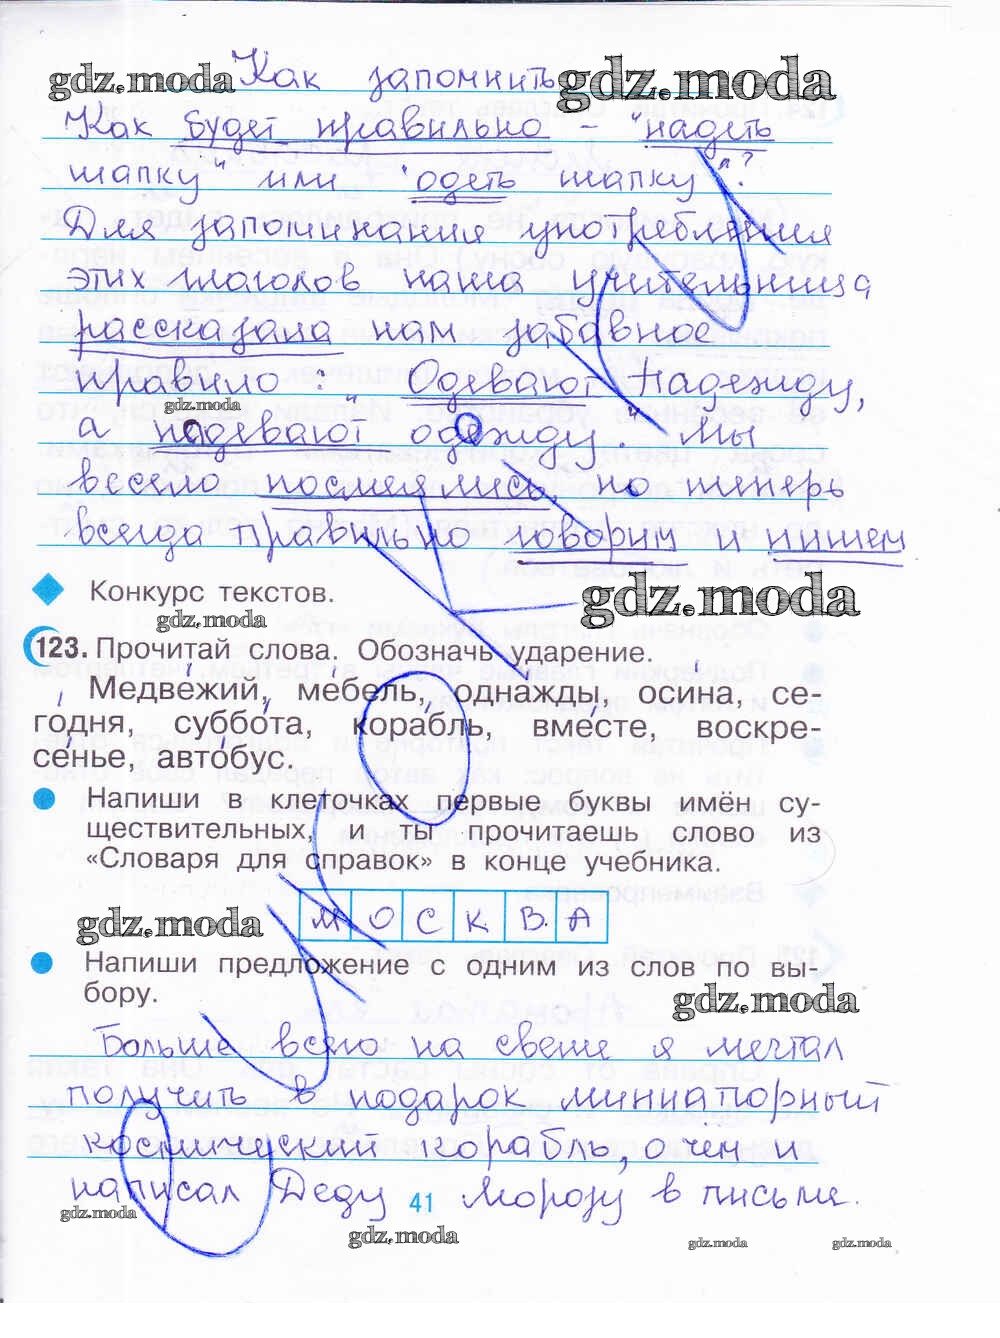 gdz.moda Как запомнить gdz.moda
Как будет правильно - "надеть
шапку" или "одеть шапку"?
Для запоминания употребления
этих глаголов наша учительница
рассказала нам забавное
правило: "Одевают Надежду,
gdz.moda
а надевают одежду." Мы
весело посмеялись, но теперь
всегда правильно говорим и пишем
Конкурс текстов.
gdz.moda
gdz.moda
123. Прочитай слова. Обозначь ударение.
Медвежий, мебель, однажды, осина, се-
годня, суббота, корабль, вместе, воскре-
сенье, автобус.
Напиши в клеточках первые буквы имён су-
ществительных, и ты прочитаешь слово из
«Словаря для справок» в конце учебника.
gdz.moda М О С К В. А
Напиши предложение с одним из слов по вы-
бору.
gdz.moda
Больше всего на свете я мечтал
получить в подарок миниатюрный
космический корабль, о чём и
написал Деду 41 Морозу в письме.
gdz.moda
gdz.moda
gdz.moda
gdz.moda